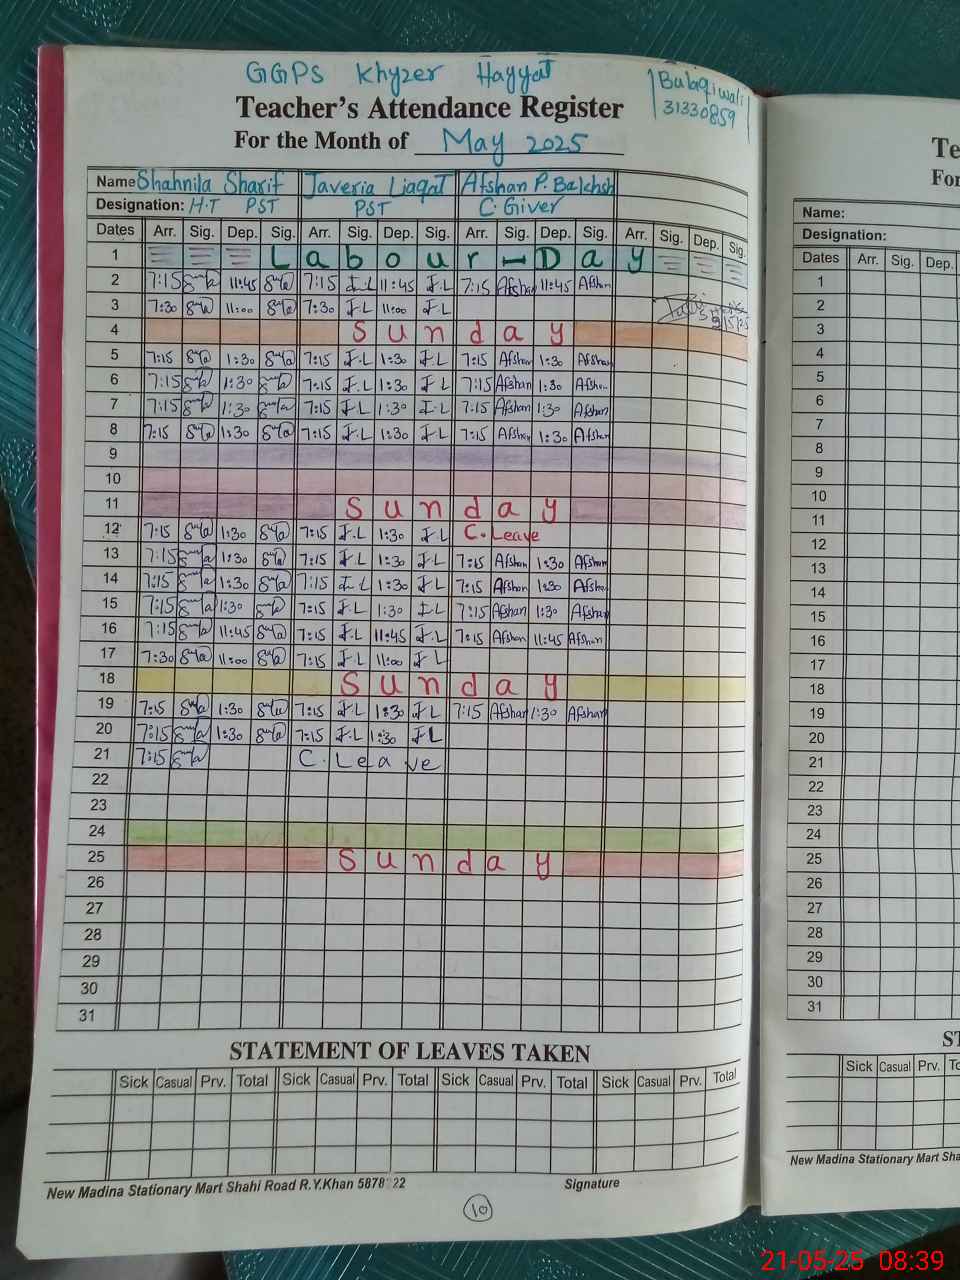 GGPS Khyzer Hayyat
Bulaqiwali
31330859
Teacher's Attendance Register
For the Month of May 2025
Name Shahnila Sharif Javeria Liaqat Afshan P. Bakhsh
Designation: H.T PST PST C. Giver
Dates Arr. Sig. Dep. Sig. Arr. Sig. Dep. Sig. Arr. Sig. Dep. Sig. Arr. Sig. Dep. Sig.
1 Labour-Day
2 7:15 11:45 7:15 J.L 11:45 J.L 7:15 Afshan 11:45 Afshan
3 7:30 11:00 7:30 J.L 11:00 J.L
4 Sunday
5 7:15 1:30 7:15 J.L 1:30 J.L 7:15 Afshan 1:30 Afshan
6 7:15 1:30 7:15 J.L 1:30 J.L 7:15 Afshan 1:30 Afshan
7 7:15 1:30 7:15 J.L 1:30 J.L 7:15 Afshan 1:30 Afshan
8 7:15 1:30 7:15 J.L 1:30 J.L 7:15 Afshan 1:30 Afshan
9
10
11 Sunday
12 7:15 1:30 7:15 J.L 1:30 J.L C. Leave
13 7:15 1:30 7:15 J.L 1:30 J.L 7:15 Afshan 1:30 Afshan
14 7:15 1:30 7:15 J.L 1:30 J.L 7:15 Afshan 1:30 Afshan
15 7:15 1:30 7:15 J.L 1:30 J.L 7:15 Afshan 1:30 Afshan
16 7:15 11:45 7:15 J.L 11:45 J.L 7:15 Afshan 11:45 Afshan
17 7:30 11:00 7:15 J.L 11:00 J.L
18 Sunday
19 7:15 1:30 7:15 J.L 1:30 J.L 7:15 Afshan 1:30 Afshan
20 7:15 1:30 7:15 J.L 1:30 J.L
21 7:15 C. Leave
22
23
24
25 Sunday
26
27
28
29
30
31
STATEMENT OF LEAVES TAKEN
Sick Casual Prv. Total Sick Casual Prv. Total Sick Casual Prv. Total Sick Casual Prv. Total
New Madina Stationary Mart Shahi Road R.Y.Khan Signature
10
Name:
Designation:
Dates Arr. Sig. Dep.
1
2
3
4
5
6
7
8
9
10
11
12
13
14
15
16
17
18
19
20
21
22
23
24
25
26
27
28
29
30
31
Sick Casual Prv.
New Madina Stationary Mart
21-05-25 08:39